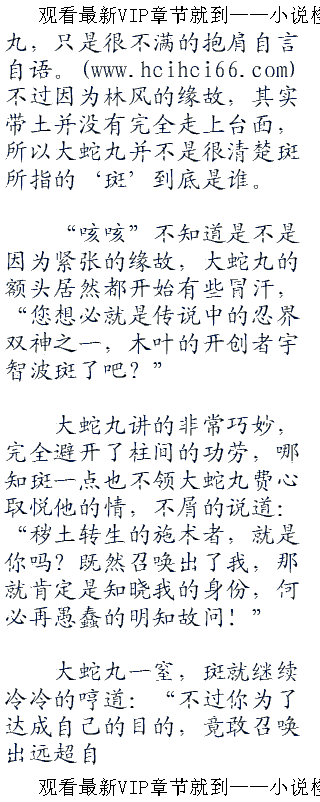 观看最新VIP章节就到——小说检
丸，只是很不满的抱肩自言
自语。(www.hcihci66.com)
不过因为林风的缘故，其实
带土并没有完全走上台面，
所以大蛇丸并不是很清楚斑
所指的‘斑’到底是谁。
“咳咳”不知道是不是
因为紧张的缘故，大蛇丸的
额头居然都开始有些冒汗，
“您想必就是传说中的忍界
双神之一，木叶的开创者宇
智波斑了吧？”
大蛇丸讲的非常巧妙，
完全避开了柱间的功劳，哪
知斑一点也不领大蛇丸费心
取悦他的情，不屑的说道：
“秽土转生的施术者，就是
你吗？既然召唤出了我，那
就肯定是知晓我的身份，何
必再愚蠢的明知故问！”
大蛇丸一窒，斑就继续
冷冷的哼道：“不过你为了
达成自己的目的，竟敢召唤
出远超自
观看最新VIP章节就到——小说检